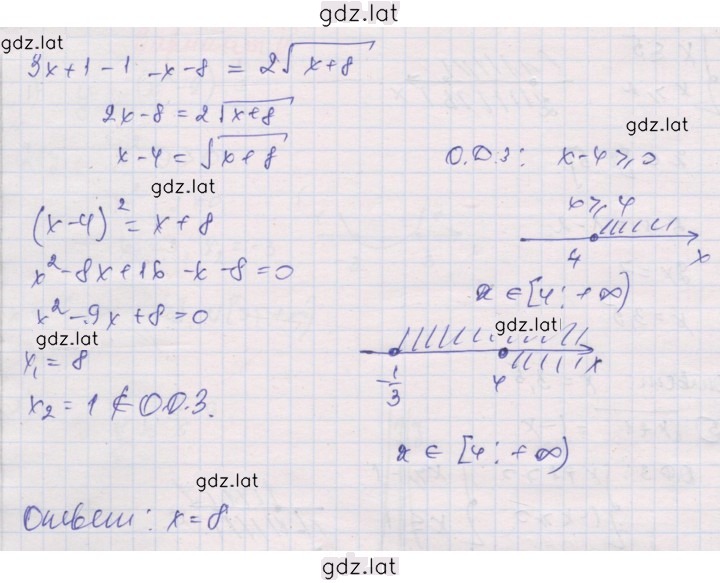 gdz.lat
gdz.lat
3x+1-1 -x-8 = 2√(x+8)
2x-8 = 2√(x+8)
gdz.lat
x-4 = √(x+8)
О.Д.З: x-4⩾0
gdz.lat
x⩾4
(x-4)² = x+8
4 x
x²-8x+16 -x-8=0
x ∈ [4; +∞)
x²-9x+8=0
gdz.lat
gdz.lat
x₁=8
-1/3 4 x
x₂ = 1 ∉ О.Д.З.
x ∈ [4; +∞)
gdz.lat
Ответ: x=8
gdz.lat